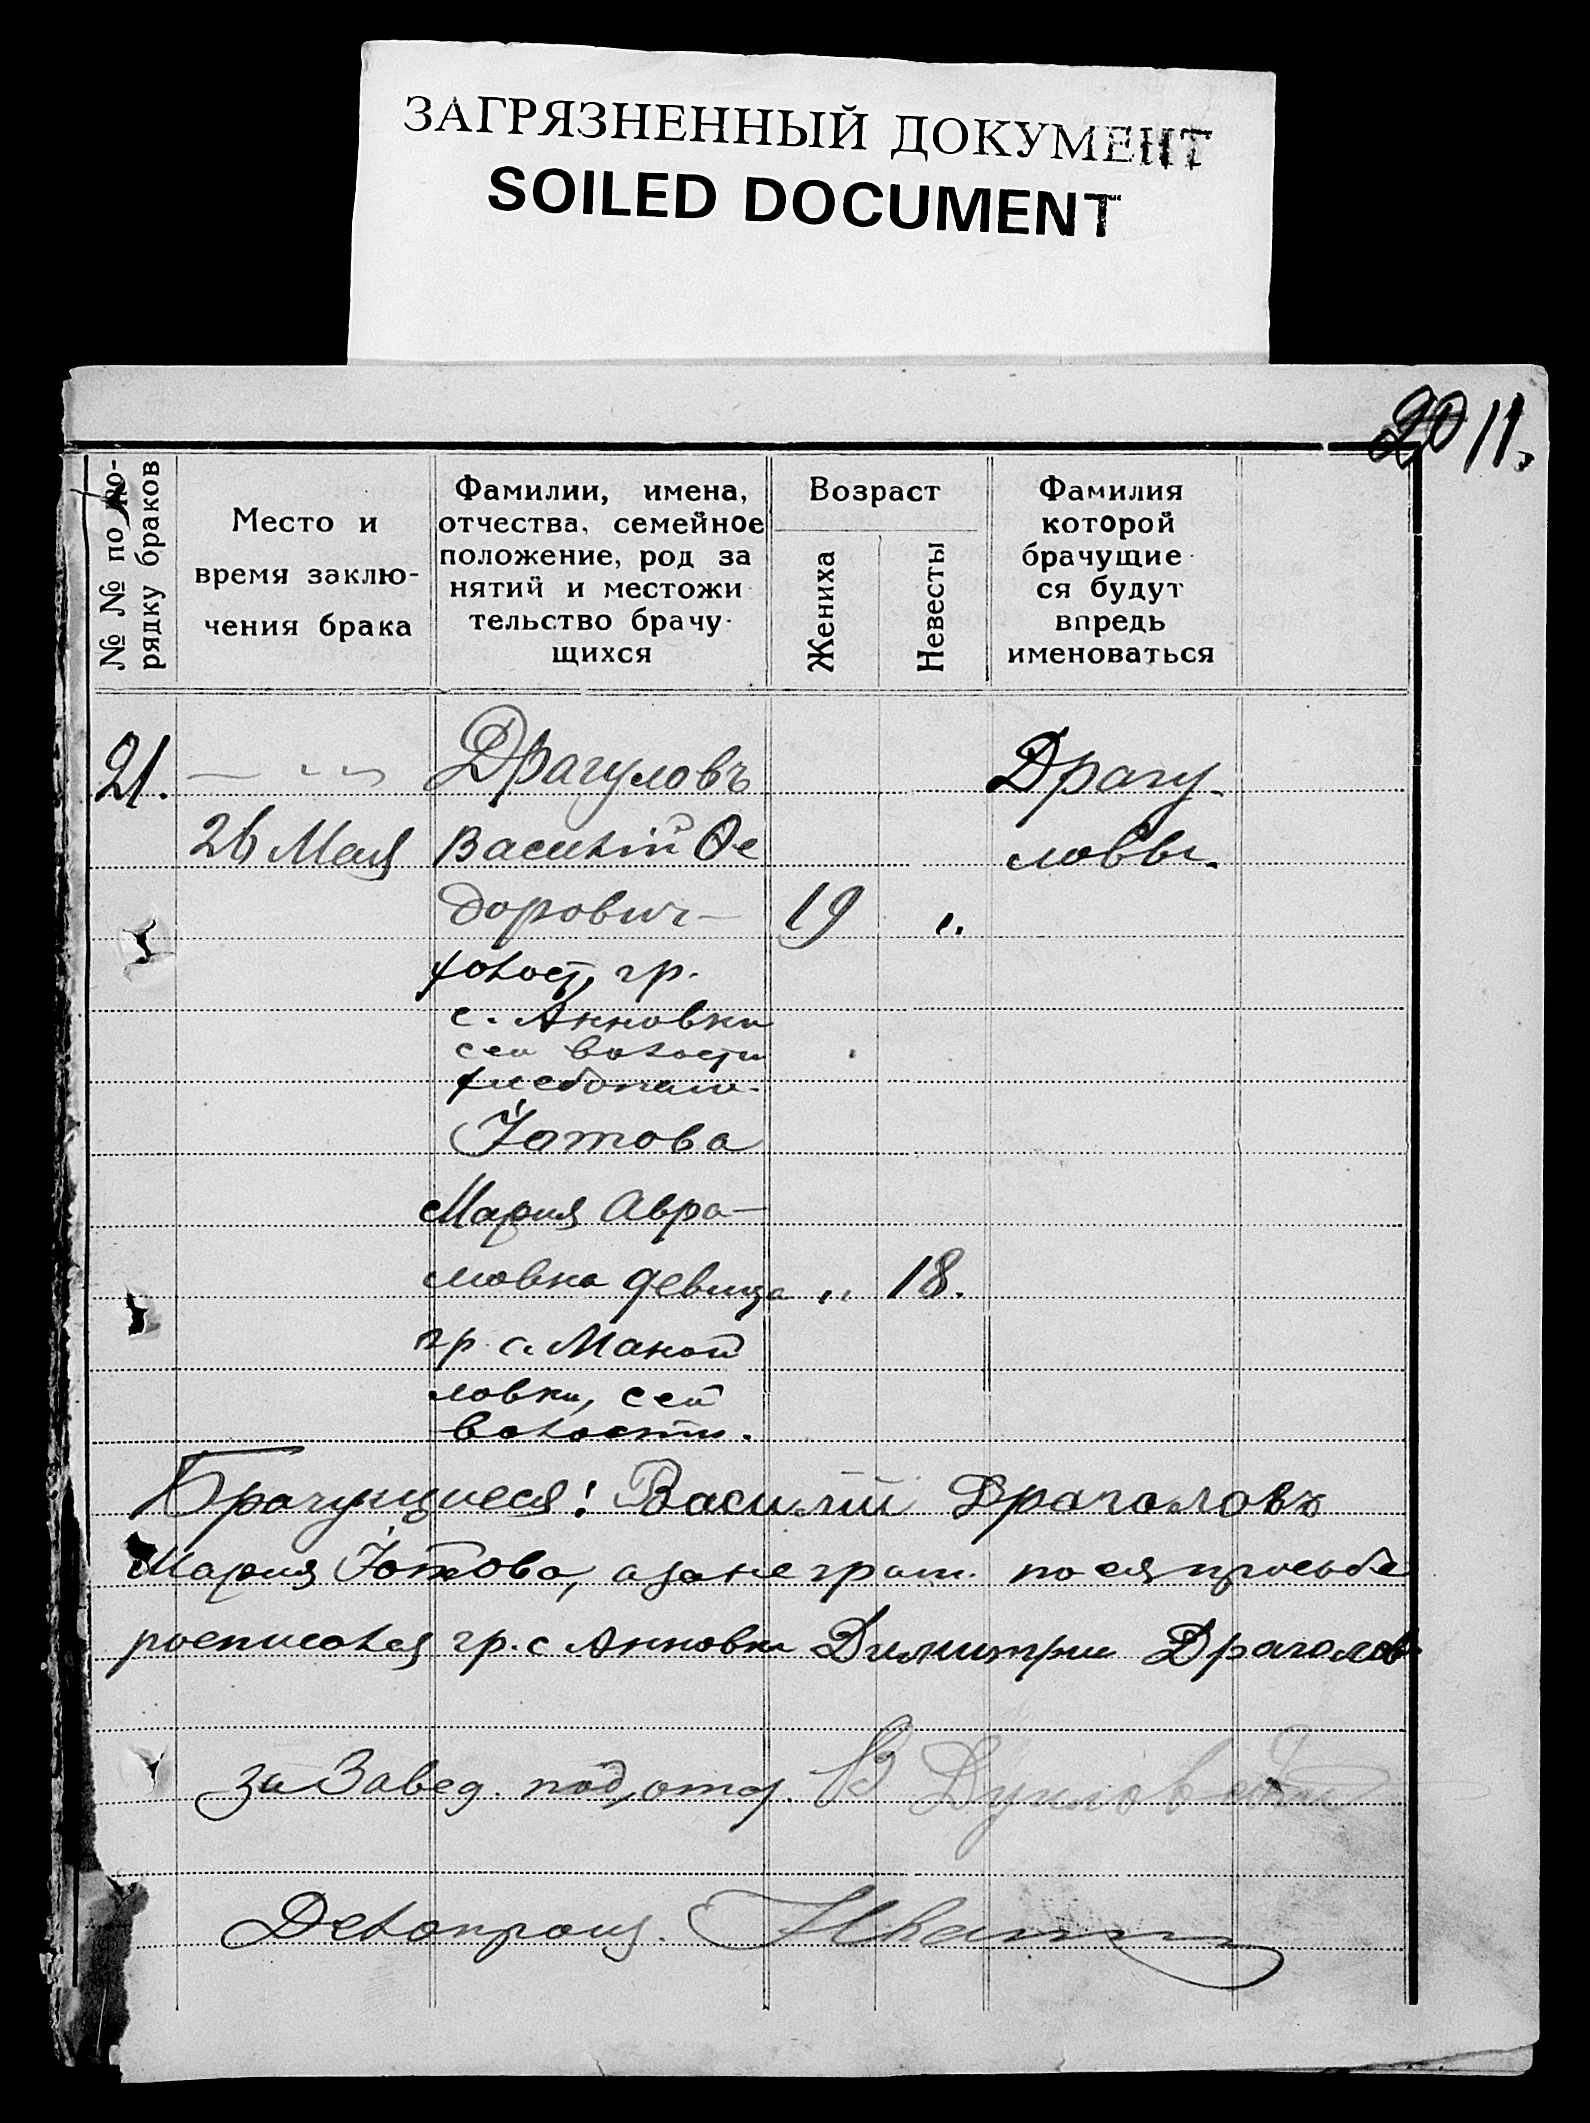 ЗАГРЯЗНЕННЫЙ ДОКУМЕНТ
SOILED DOCUMENT
20 11.
№ № по по-
рядку браков
Место и
время заклю-
чения брака
Фамилии, имена,
отчества, семейное
положение, род за
нятий и местожи
тельство брачу-
щихся
Возраст
Жениха
Невесты
Фамилия
которой
брачущие
ся будут
впредь
именоваться
21. — " — Драгуловъ Драгу-
26 Мая Василій Ѳе ловы.
дорович— 19 "
холост, гр.
с. Анновки
сей волости
хлебопаш.
Іотова
Мария Авра—
мовна девица " 18.
гр. с. Маной
ловки, сей
волости.
Брачущиеся: Василій Драгаловъ
Мария Іотова, а за не грам. по ея просьбе
росписался гр. с Анновки Димитрий Драгалов
за Завед. под, отд. В
Делопроиз.